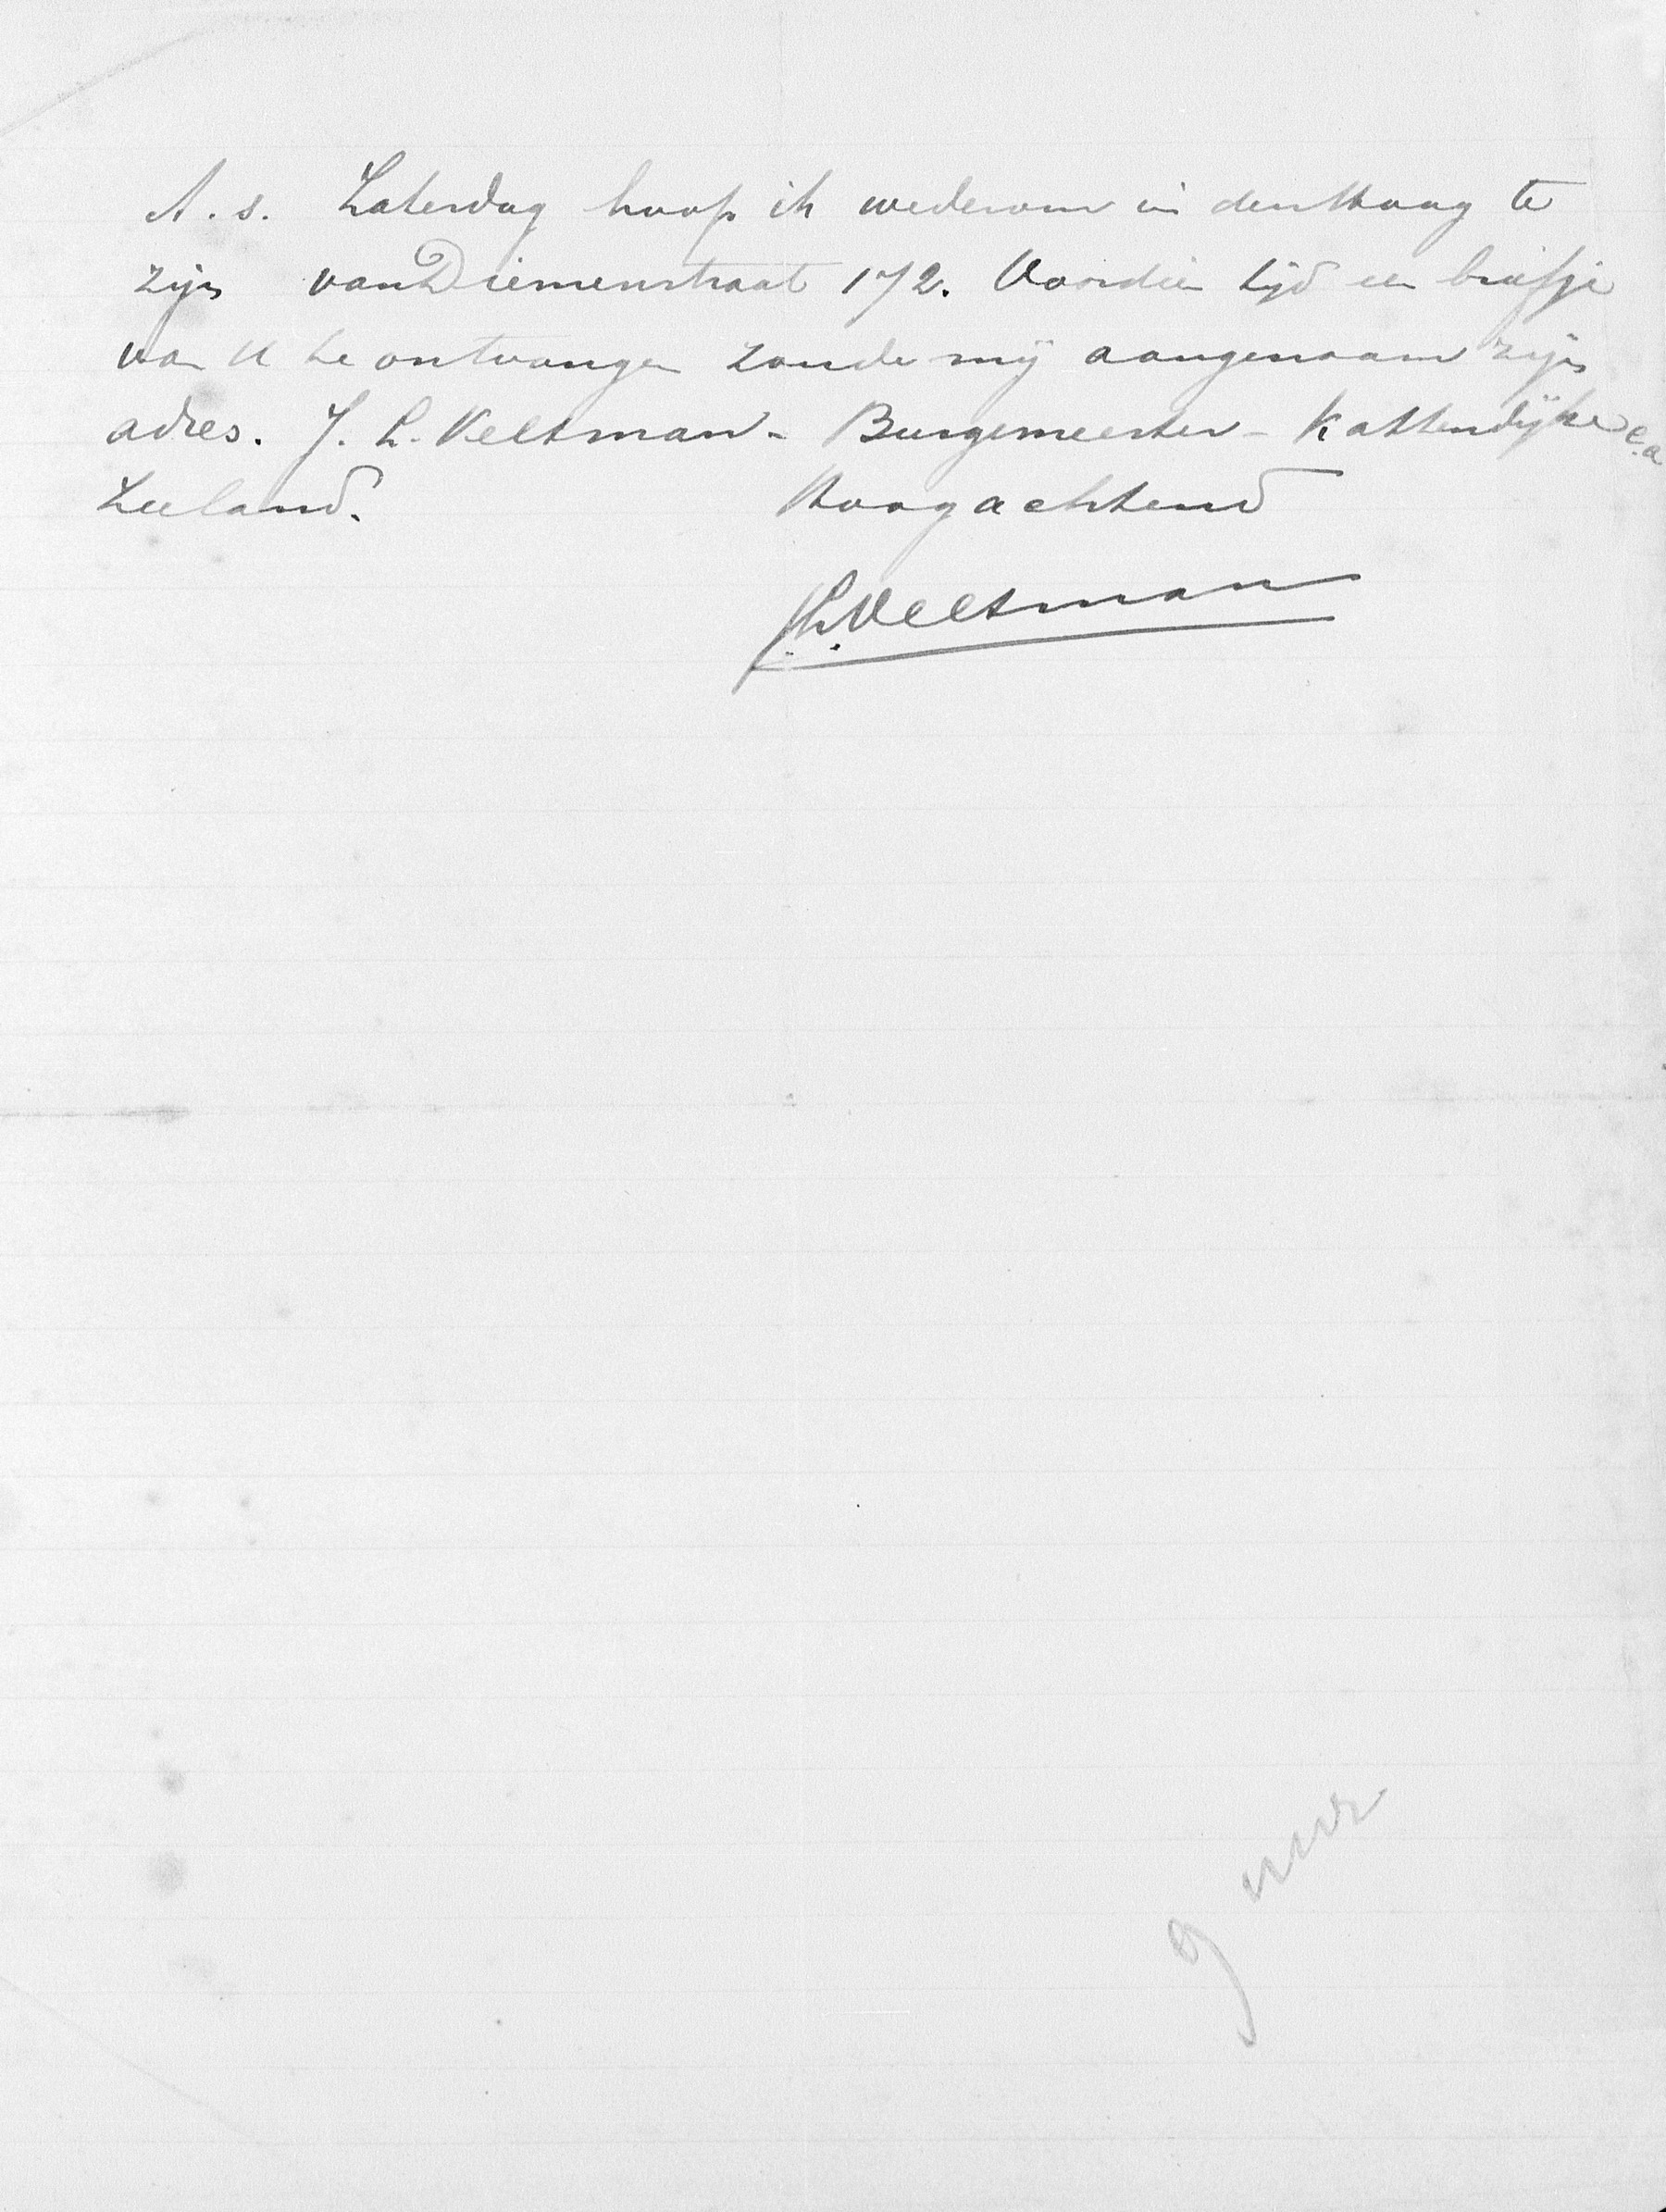 A.s. Zaterdag hoop ik wederom in den Haag te
zijn van Diemenstraat 172. Voor dien tijd een briefje
van U te ontvangen zoude mij aangenaam zijn
adres. J. L. Veltman - Burgemeester - Kattendijke e.a
Zeeland. Hoogachtend
JLVeltman
9 uur